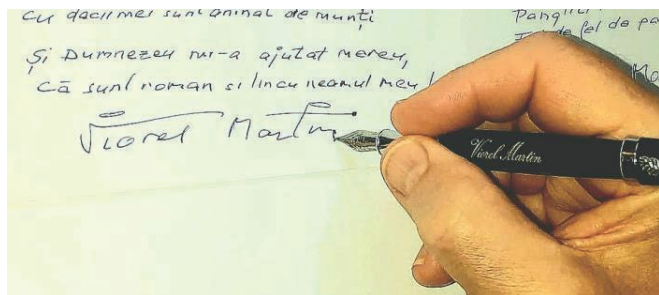 cu dacii mei sunt aninat de munți
Și Dumnezeu mi-a ajutat mereu,
Că sunt roman si lincu neamul meu!
Viorel Martin
Viorel Martin
Panglici
de fel de pa
Ma